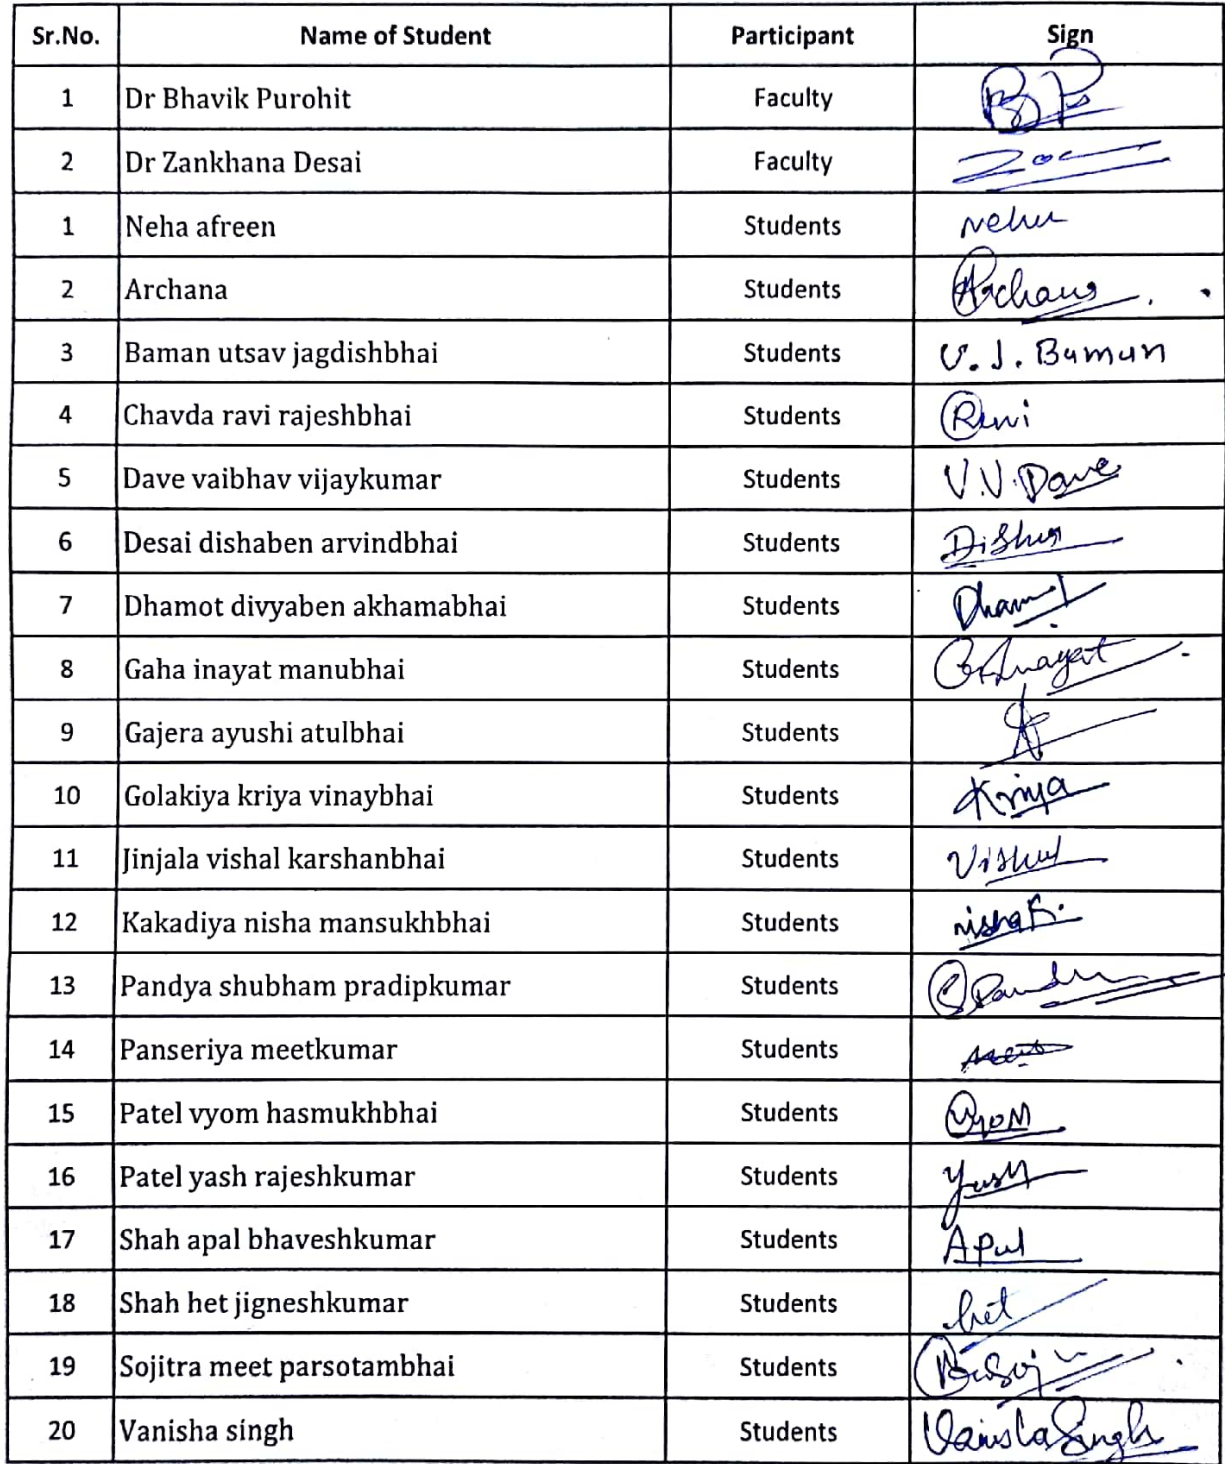 Sr.No. Name of Student Participant Sign
1 Dr Bhavik Purohit Faculty
2 Dr Zankhana Desai Faculty
1 Neha afreen Students Neha
2 Archana Students Archana
3 Baman utsav jagdishbhai Students U. J. Baman
4 Chavda ravi rajeshbhai Students Ravi
5 Dave vaibhav vijaykumar Students V.V. Dave
6 Desai dishaben arvindbhai Students Disha
7 Dhamot divyaben akhamabhai Students
8 Gaha inayat manubhai Students
9 Gajera ayushi atulbhai Students
10 Golakiya kriya vinaybhai Students Kriya
11 Jinjala vishal karshanbhai Students Vishal
12 Kakadiya nisha mansukhbhai Students nisha K.
13 Pandya shubham pradipkumar Students
14 Panseriya meetkumar Students
15 Patel vyom hasmukhbhai Students Vyom
16 Patel yash rajeshkumar Students Yash
17 Shah apal bhaveshkumar Students Apal
18 Shah het jigneshkumar Students het
19 Sojitra meet parsotambhai Students
20 Vanisha singh Students Vanisha Singh